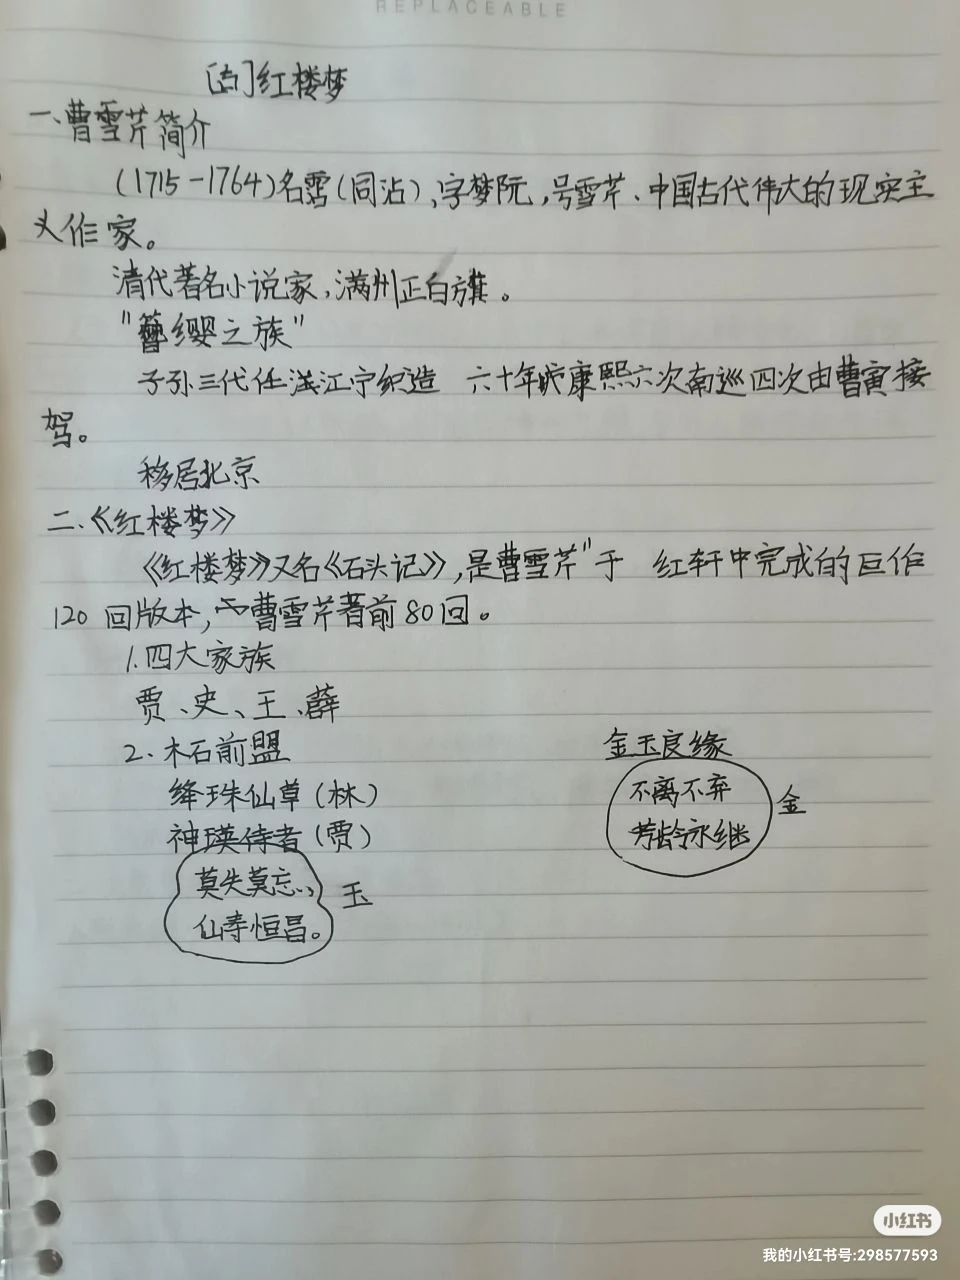 REPLACEABLE
[古]红楼梦
一、曹雪芹简介
(1715-1764)名霑(同沾)、字梦阮,号雪芹、中国古代伟大的现实主
义作家。
清代著名小说家,满州正白旗。
"簪缨之族"
子孙三代任 江宁织造 六十年 康熙六次南巡四次由曹寅接
驾。
移居北京
二、《红楼梦》
《红楼梦》又名《石头记》,是曹雪芹"于 红轩中完成的巨作
120回版本,而曹雪芹著前80回。
1.四大家族
贾、史、王、薛
2、木石前盟
绛珠仙草(林)
神瑛侍者(贾)
莫失莫忘、
仙寿恒昌。
玉
金玉良缘
不离不弃
芳龄永继
金
小红书
我的小红书号:298577593